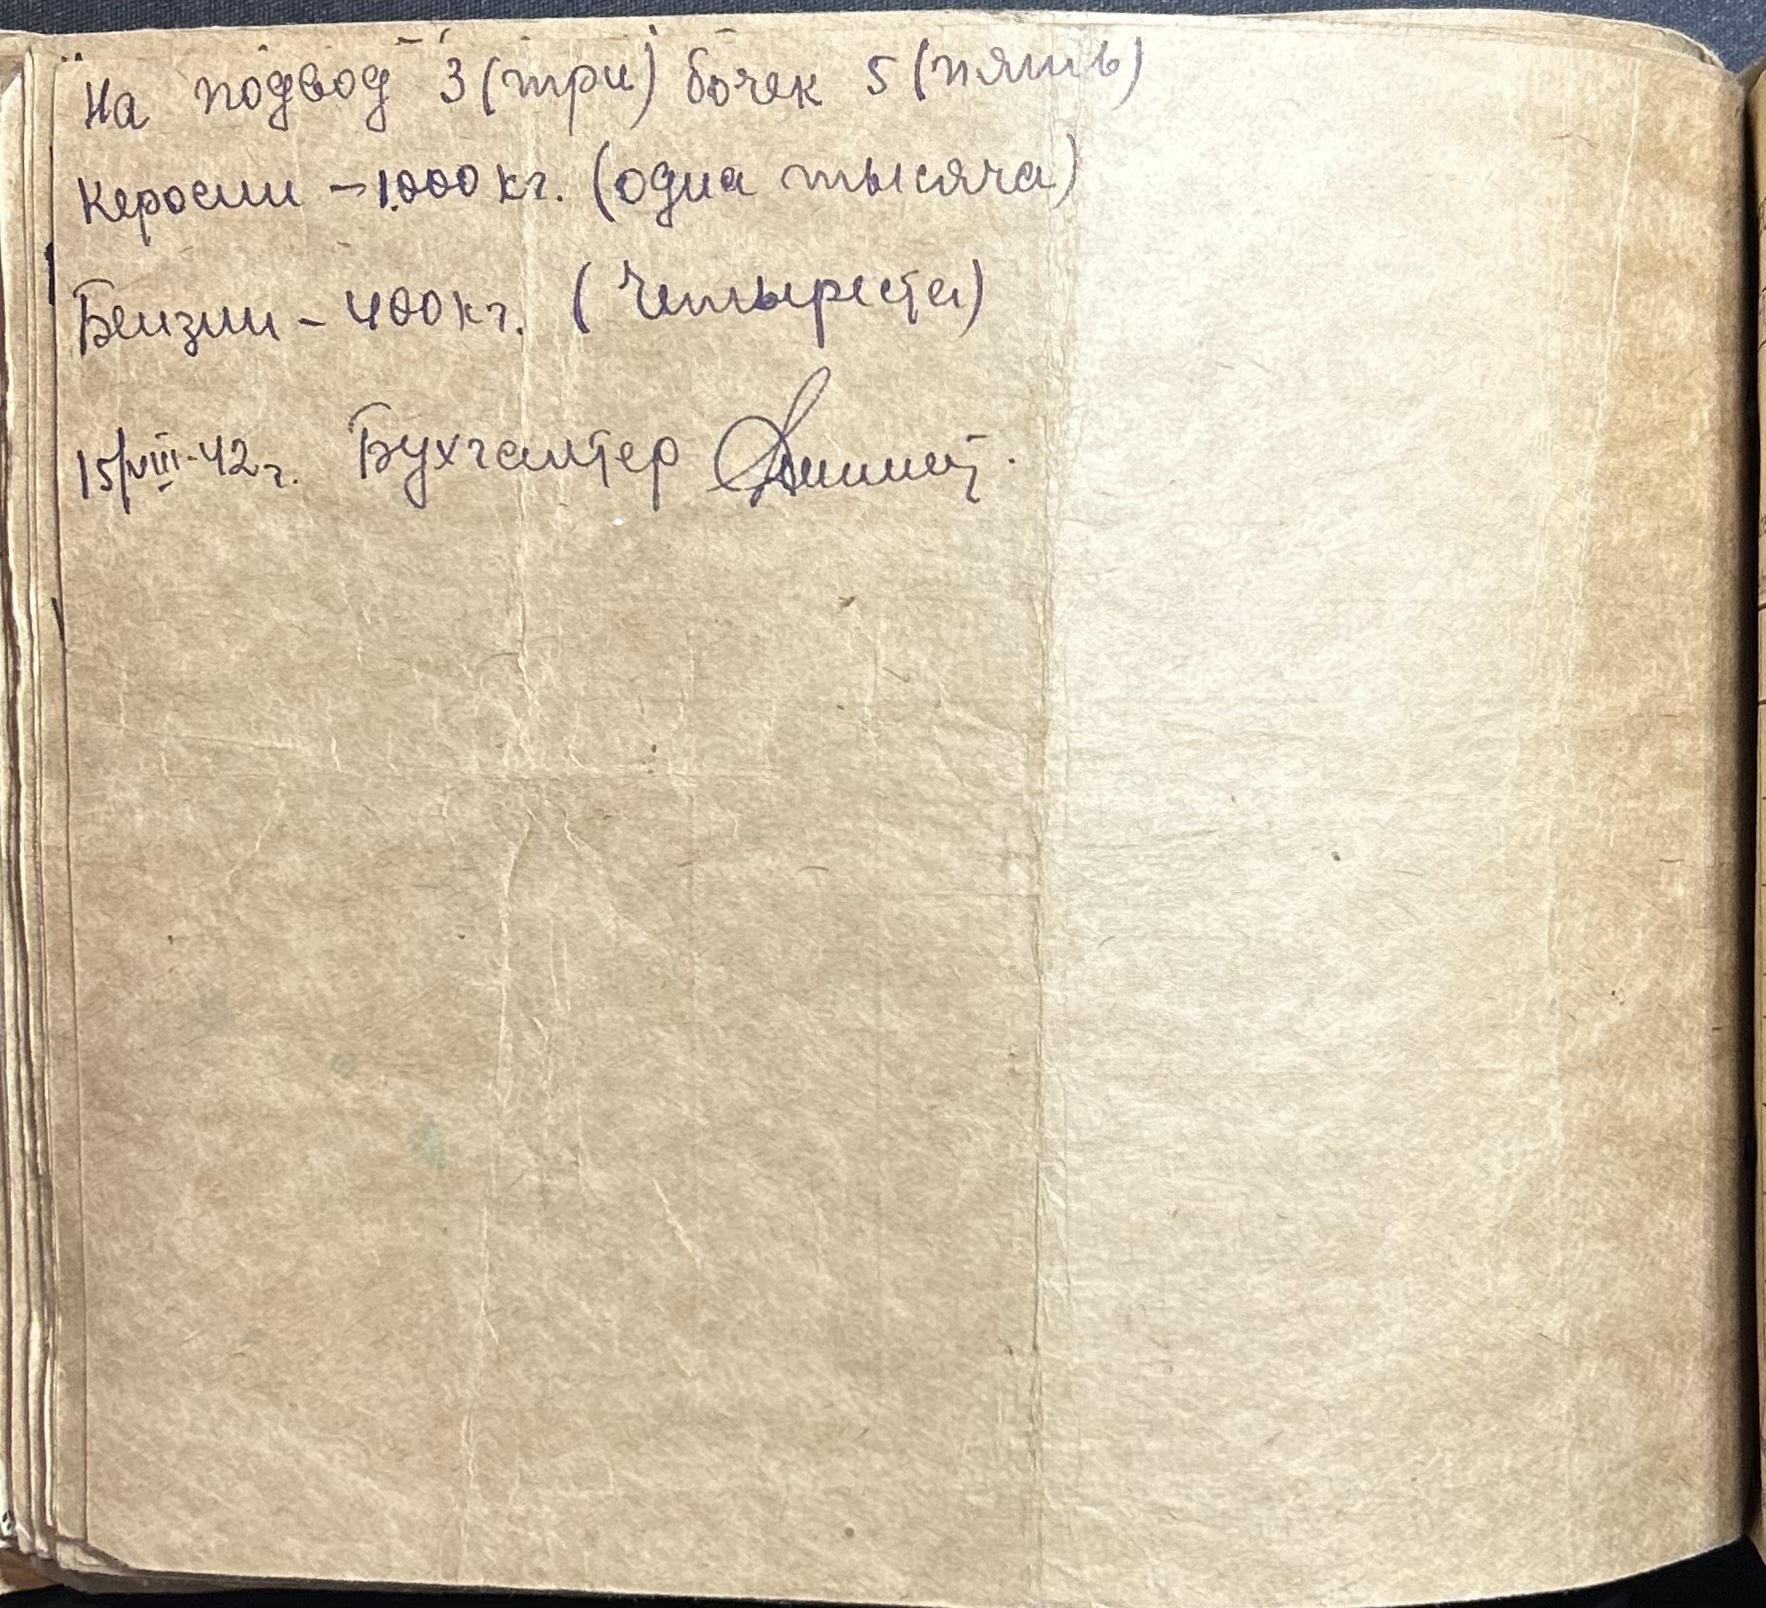 На подвод 3 (три) бочек 5 (пять)
Керосин – 1.000 кг. (одна тысяча)
Бензин – 400 кг. (Четыреста)
15/VIII-42 г. Бухгалтер